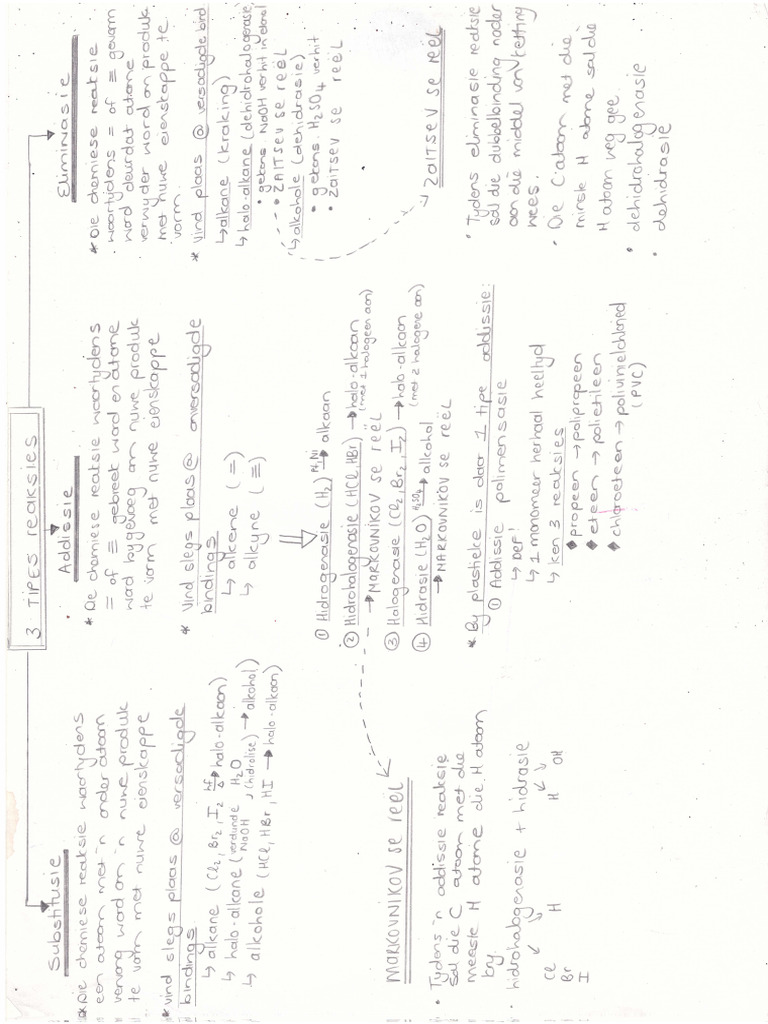 3 TIPES REAKSIES
Substitusie
* Die chemiese reaksie waartydens
een atoom met 'n ander atoom
vervang word om 'n nuwe produk
te vorm met nuwe eienskappe
* Vind slegs plaas @ versadigde
bindings
↳ alkane (Cl₂, Br₂, I₂ hf/Δ → halo-alkaan)
↳ halo-alkane (verdunde NaOH, H₂O (hidrolise) → alkohol)
↳ alkohole (HCl, HBr, HI → halo-alkaan)
MARKOVNIKOV SE REËL
• Tydens 'n addissie reaksie
sal die C atoom met die
meeste H atome die H atoom
kry.
• hidrohalogenasie + hidrasie
Cl H H OH
Br
I
Addissie
* De chemiese reaksie waartydens
= of ≡ gebreek word en atome
word bygevoeg om nuwe produk
te vorm met nuwe eienskappe
* Vind slegs plaas @ onversadigde
bindings
↳ alkene (=)
↳ alkyne (≡)
① Hidrogerasie (H₂) Pt,Ni → alkaan
② Hidrohalogerasie (HCl, HBr) → halo-alkaan
(met 1 halogeen aan)
→ MARKOVNIKOV SE REËL
③ Halogerasie (Cl₂, Br₂, I₂) → halo-alkaan
(met 2 halogene aan)
④ Hidrasie (H₂O) H₂SO₄ → alkohol
→ MARKOVNIKOV SE REËL
* By plastieke is daar 1 tipe addissie:
① Addissie polimensasie
↳ DEF!
↳ 1 monomeer herhaal heeltyd
↳ ken 3 reaksies
◆ propeen → polipropeen
◆ eteen → polietileen
◆ chloroeteen → polivinielchloried
(PVC)
Eliminasie
* Die chemiese reaksie
waartydens = of ≡ gevorm
word deurdat atome
verwyder word om produk
met nuwe eienskappe te
vorm.
* Vind plaas @ versadigde bind
↳ alkane (kraking)
↳ halo-alkane (dehidrohalogerasie)
• gekons NaOH verhit in etanol
• ZAITSEV SE REËL
↳ alkohole (dehidrasie)
• gekons. H₂SO₄ verhit
• ZAITSEV SE REËL
ZAITSEV SE REËL
• Tydens eliminasie reaksie
sal die dubbelbinding nader
aan die middel van ketting
wees.
• Die C atoom met die
minste H atome sal die
H atoom weg gee.
• dehidrohalogenasie
• dehidrasie